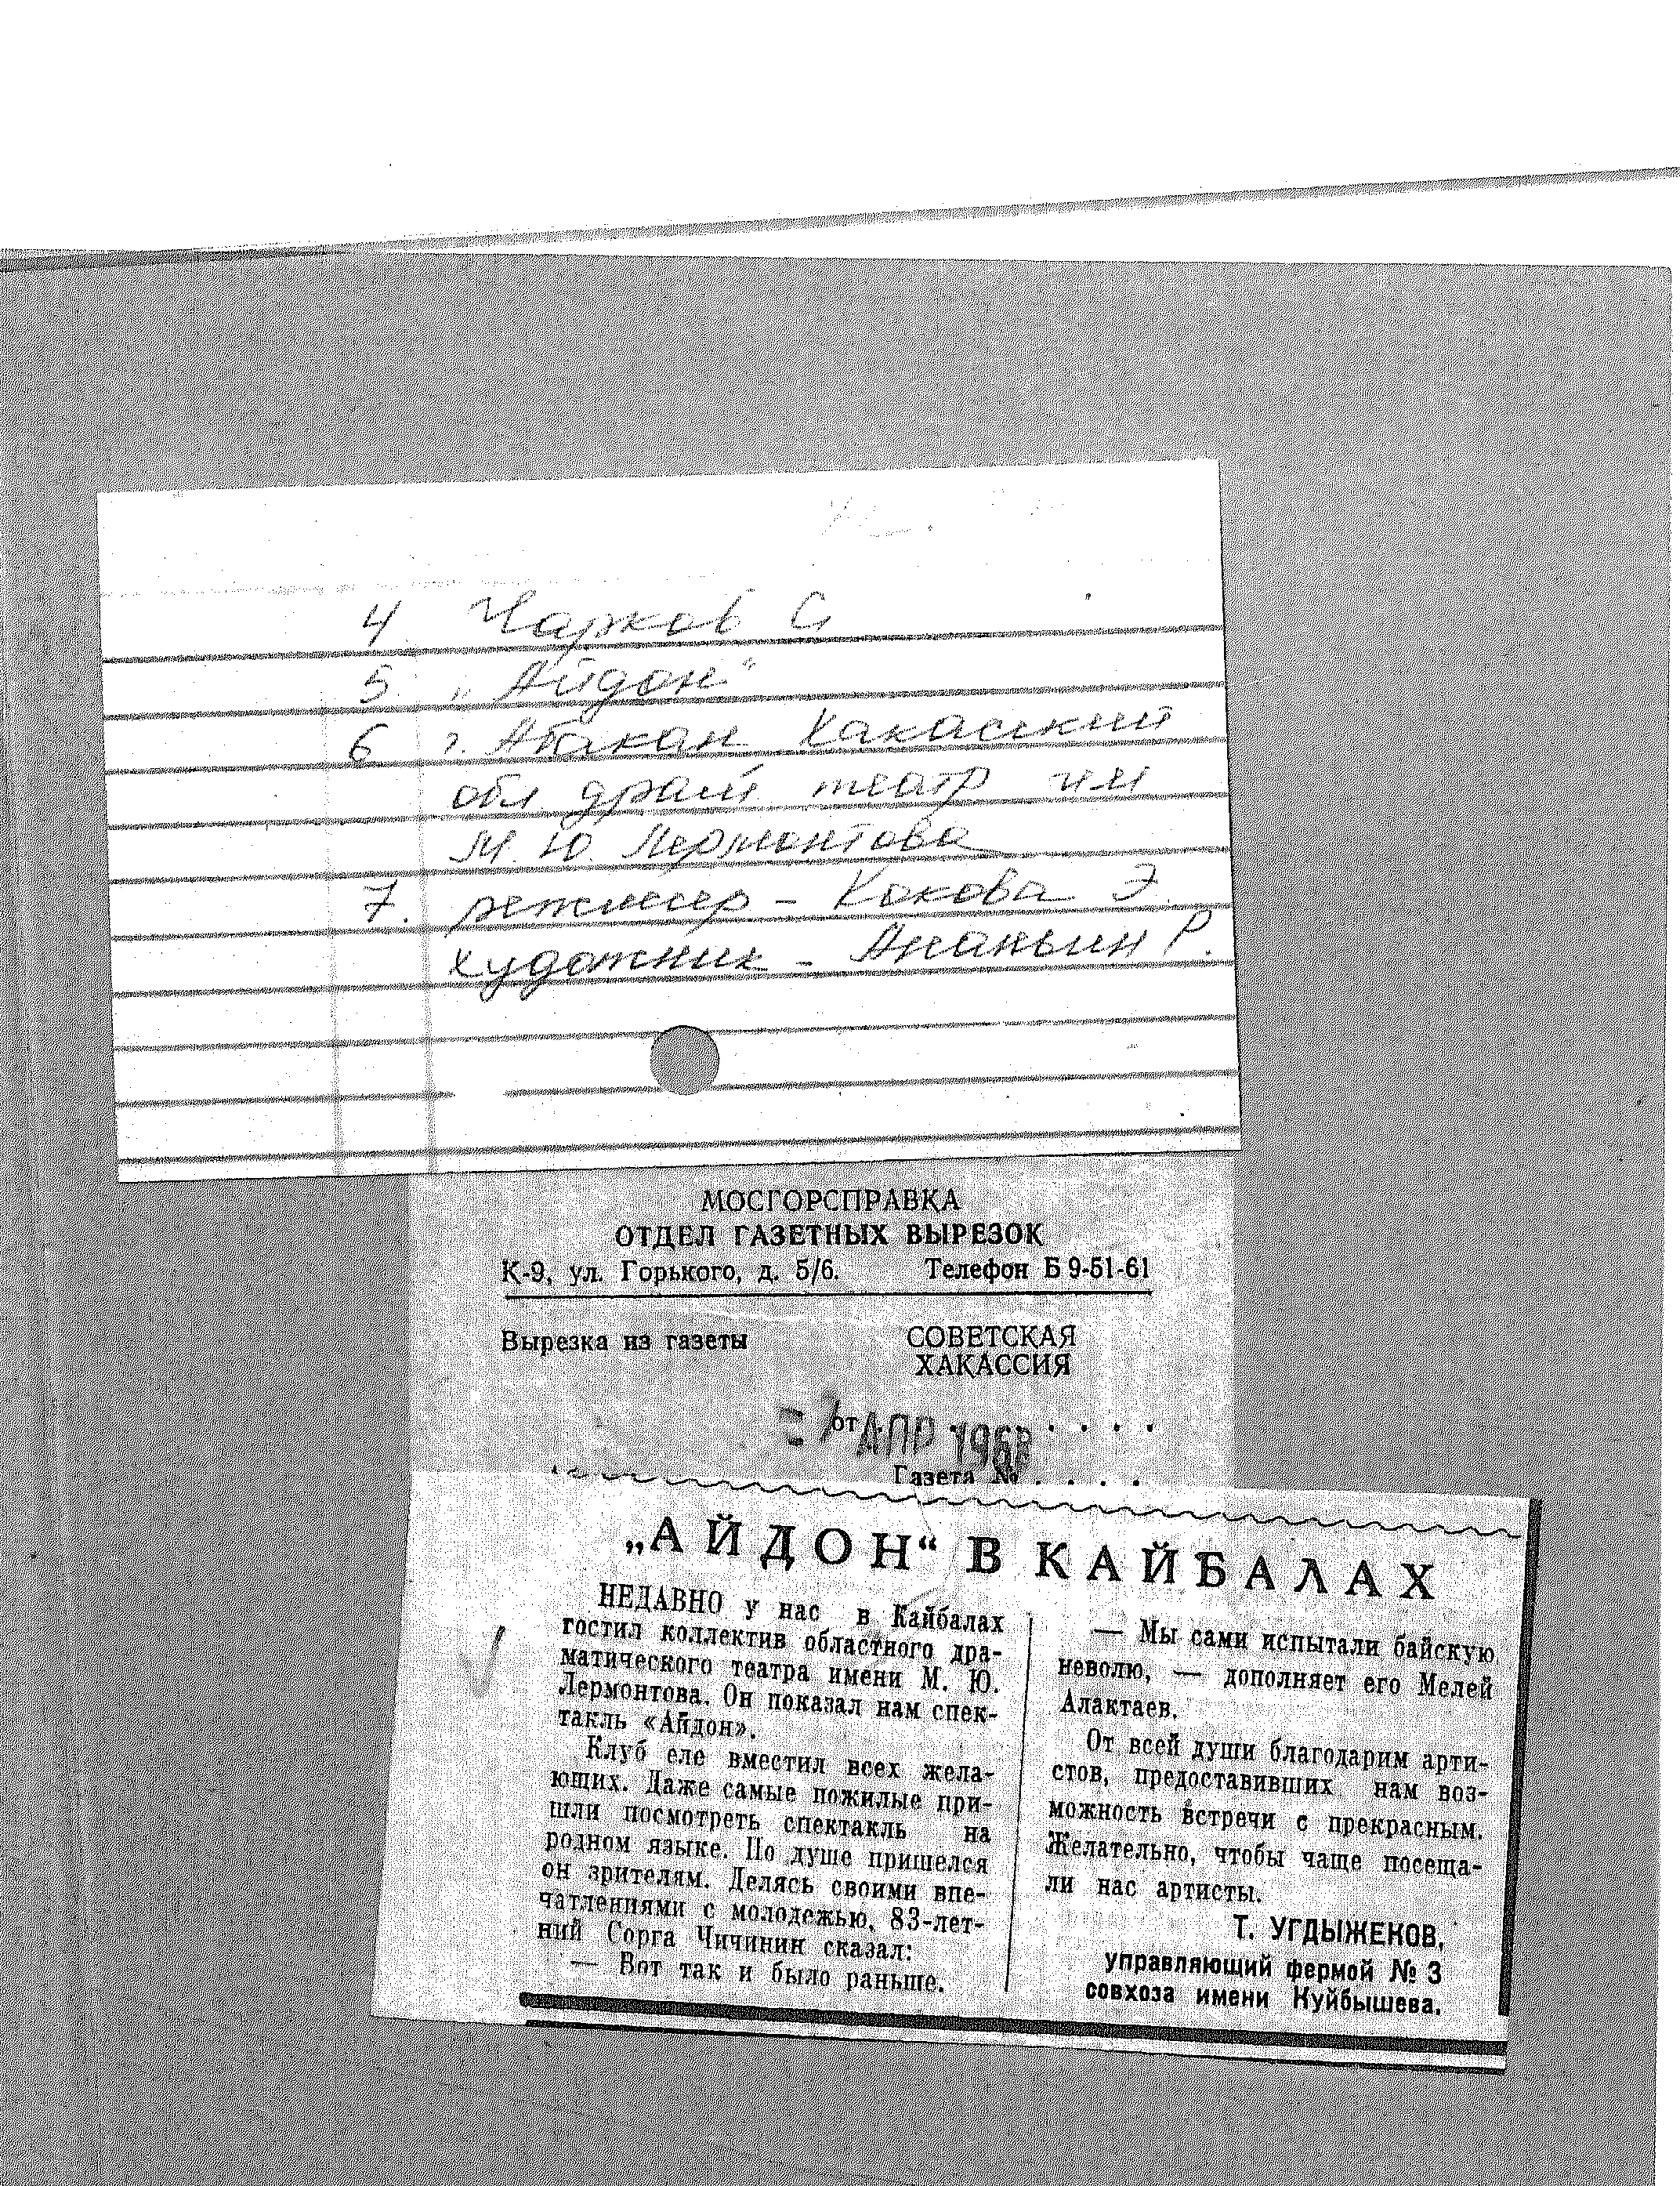 4 Чарков С
5. „Айдон"
6 г. Абакан Хакасский
обл драм театр им
М. Ю. Лермонтова
7. режиссер – Кокова Э.
художник – Ананьин Р.
МОСГОРСПРАВКА
ОТДЕЛ ГАЗЕТНЫХ ВЫРЕЗОК
К-9, ул. Горького, д. 5/6. Телефон Б 9-51-61
Вырезка из газеты СОВЕТСКАЯ
ХАКАССИЯ
от АПР
Газета № . . . .
„АЙДОН“ В КАЙБАЛАХ
НЕДАВНО у нас в Кайбалах
гостил коллектив областного дра-
матического театра имени М. Ю.
Лермонтова. Он показал нам спек-
такль «Айдон».
Клуб еле вместил всех жела-
ющих. Даже самые пожилые при-
шли посмотреть спектакль на
родном языке. По душе пришелся
он зрителям. Делясь своими впе-
чатлениями с молодежью, 83-лет-
ний Сорга Чичинин сказал:
— Вот так и было раньше.
— Мы сами испытали байскую
неволю, — дополняет его Мелей
Алактаев.
От всей души благодарим арти-
стов, предоставивших нам воз-
можность встречи с прекрасным.
Желательно, чтобы чаще посеща-
ли нас артисты.
Т. УГДЫЖЕКОВ,
управляющий фермой № 3
совхоза имени Куйбышева.